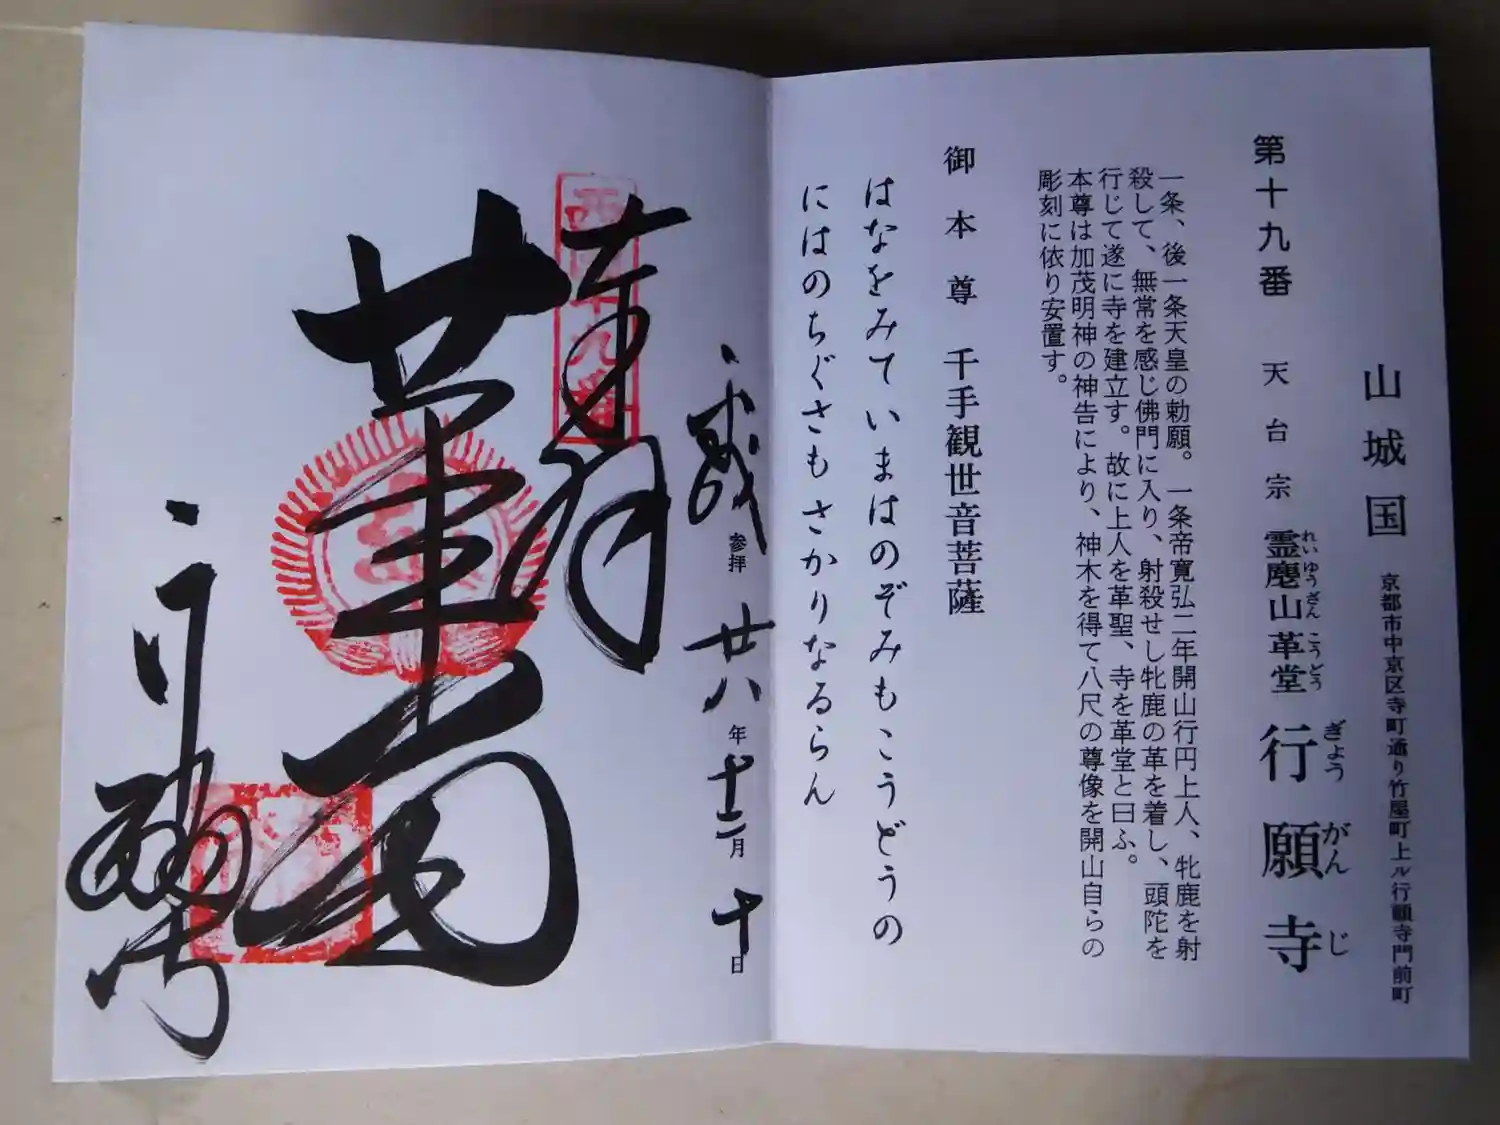 山城国 京都市中京区寺町通り竹屋町上ル行願寺門前町
第十九番 天台宗 霊麀山革堂 行願寺
れいゆうざん こうどう ぎょうがんじ
一条、後一条天皇の勅願。一条帝寛弘二年開山行円上人、牝鹿を射
殺して、無常を感じ佛門に入り、射殺せし牝鹿の革を着し、頭陀を
行じて遂に寺を建立す。故に上人を革聖、寺を革堂と曰ふ。
本尊は加茂明神の神告により、神木を得て八尺の尊像を開山自らの
彫刻に依り安置す。
御本尊 千手観世音菩薩
はなをみていまはのぞみもこうどうの
にはのちぐさもさかりなるらん
平成 参拝 廿八年十二月十日
奉拝
西国十九番
革堂
行願寺